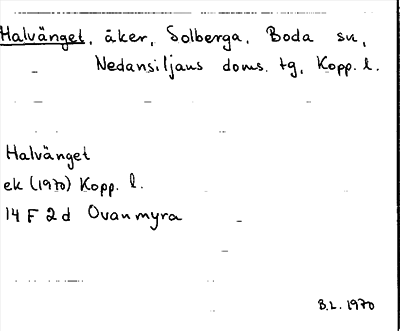 Halvänget, åker, Solberga, Boda sn,
Nedansiljans doms. tg, Kopp. l.
Halvänget
ek (1970) Kopp. l.
14 F 2 d Ovanmyra
B.L. 1970